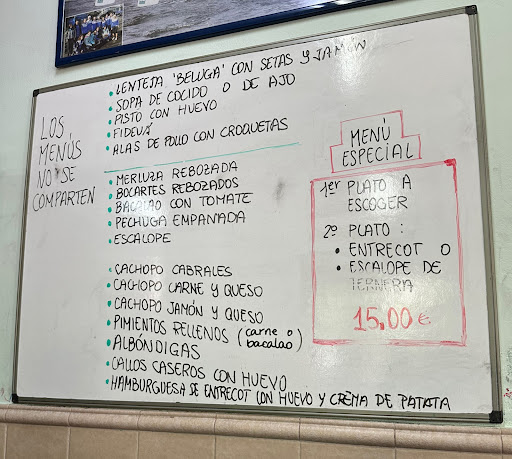 LOS
MENÚS
NO SE
COMPARTEN
LENTEJA 'BELUGA' CON SETAS Y JAMÓN
SOPA DE COCIDO O DE AJO
PISTO CON HUEVO
FIDEUÁ
ALAS DE POLLO CON CROQUETAS
MERLUZA REBOZADA
BOCARTES REBOZADOS
BACALAO CON TOMATE
PECHUGA EMPANADA
ESCALOPE
CACHOPO CABRALES
CACHOPO CARNE Y QUESO
CACHOPO JAMÓN Y QUESO
PIMIENTOS RELLENOS (carne o bacalao)
ALBÓNDIGAS
CALLOS CASEROS CON HUEVO
HAMBURGUESA DE ENTRECOT CON HUEVO Y CREMA DE PATATA
MENÚ
ESPECIAL
1er PLATO A
ESCOGER
2º PLATO :
• ENTRECOT O
• ESCALOPE DE
TERNERA
15,00 €